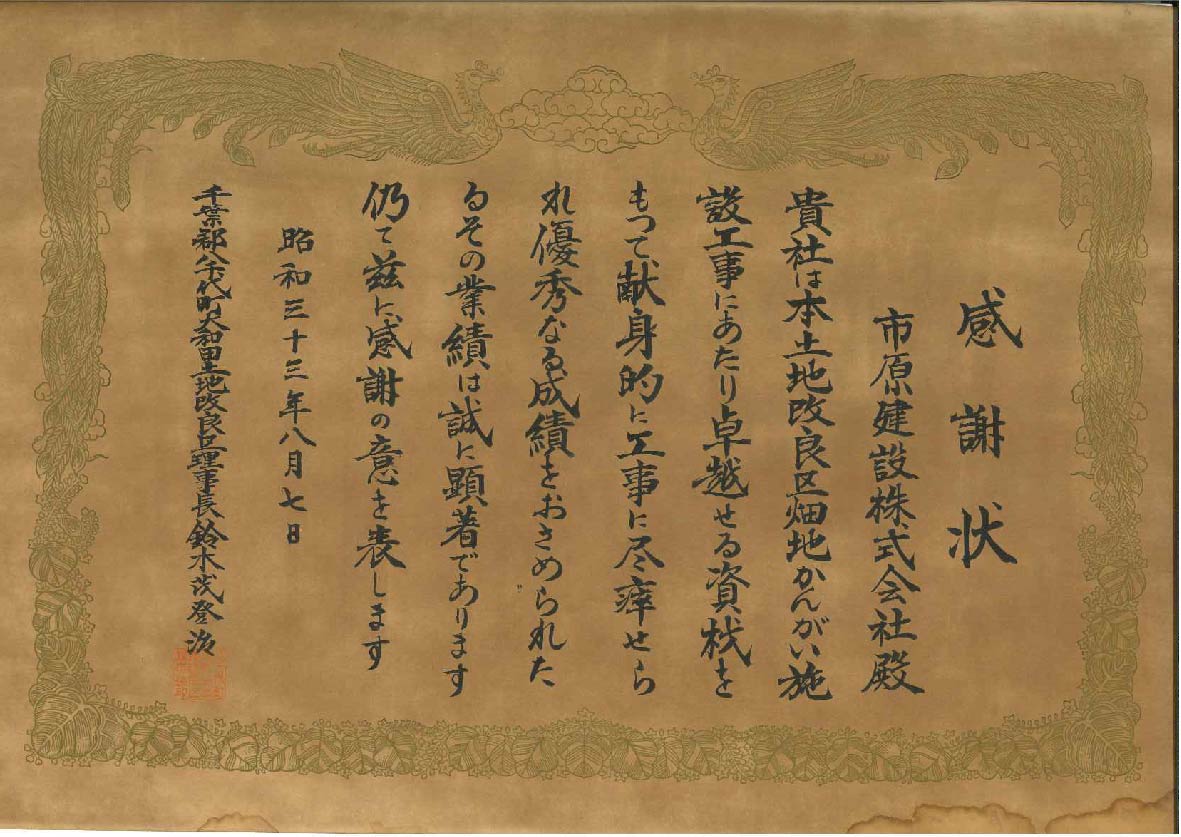 感謝状
市原建設株式会社殿
貴社は本土地改良区畑地かんがい施
設工事にあたり卓越せる資材を
もつて献身的に工事に尽瘁せら
れ優秀なる成績をおさめられた
るその業績は誠に顕著であります
仍て茲に感謝の意を表します
昭和三十三年八月七日
千葉郡八千代町大和田土地改良区理事長鈴木茂登治